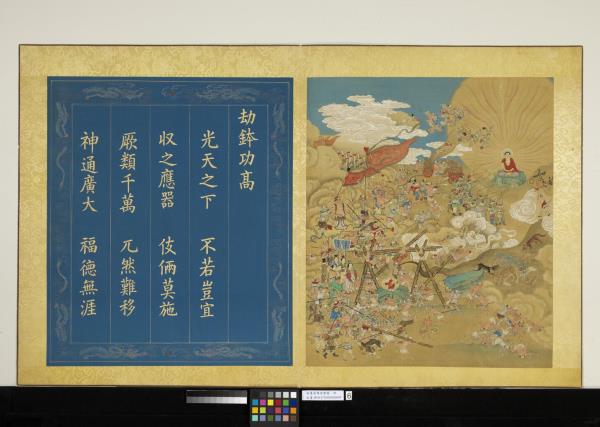 劫鉢功高
光天之下　不若豈宜
収之應器　伎倆莫施
厥類千萬　兀然難移
神通廣大　福德無涯